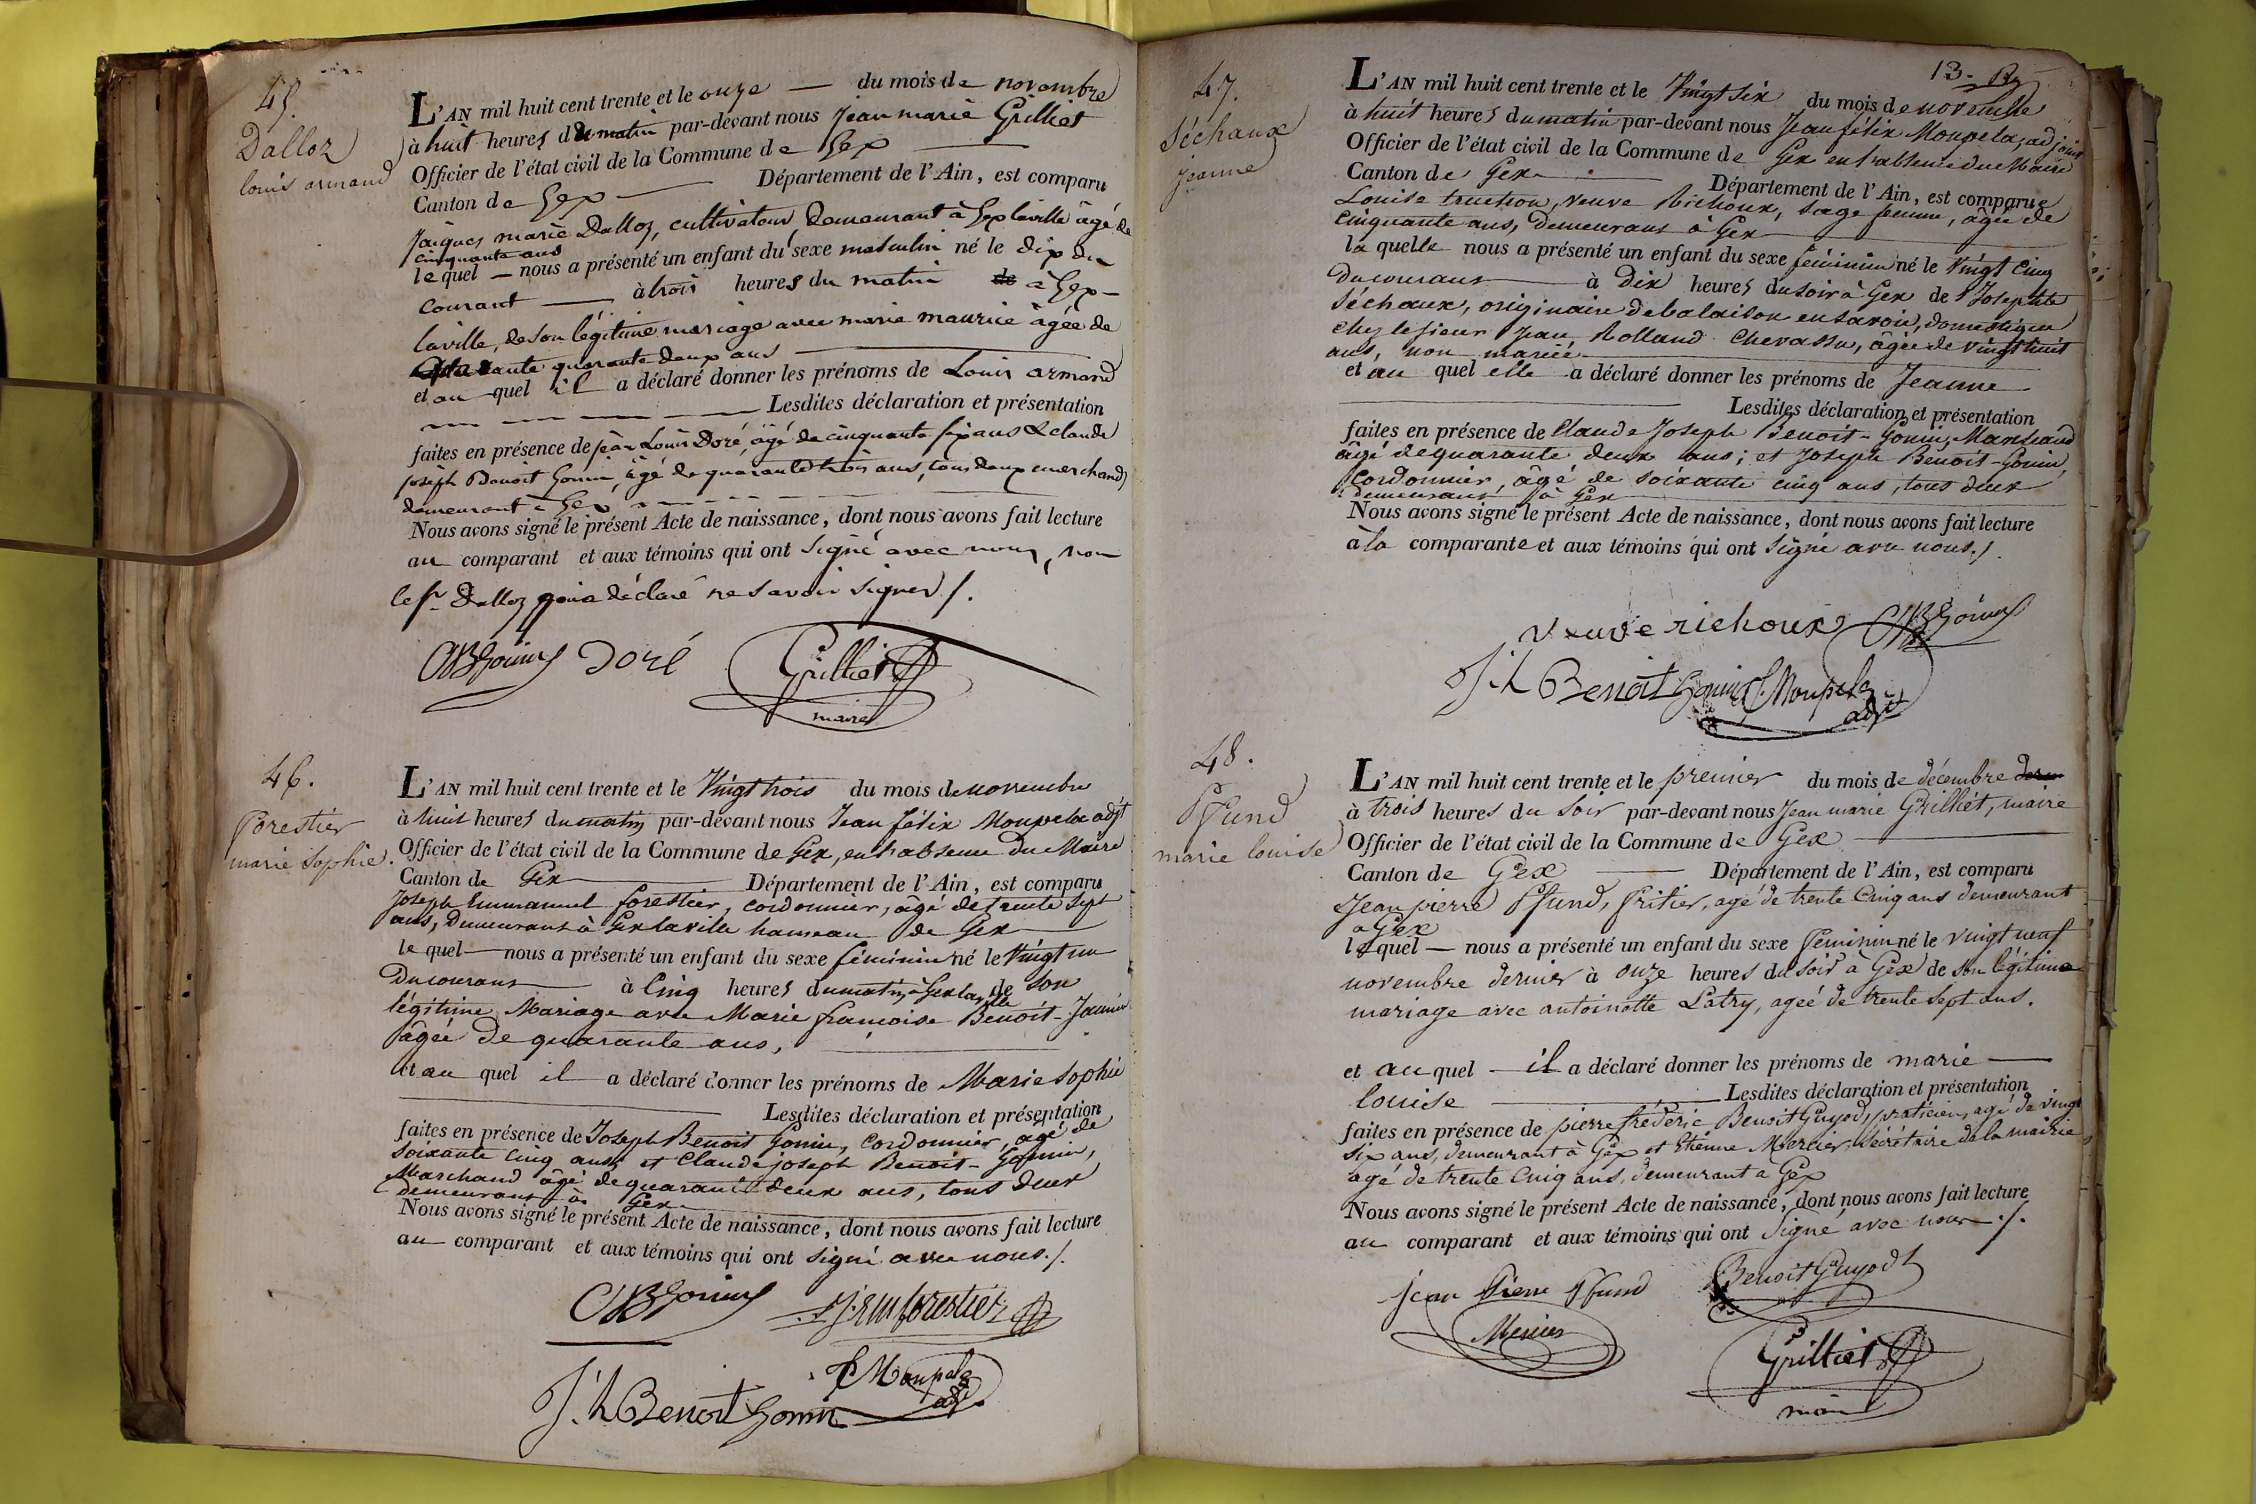 45.
Dalloz
louis armand
L'AN mil huit cent trente et le onze — du mois de novembre
à huit heures du matin par-devant nous Jean marie Grilliet
Officier de l'état civil de la Commune de Gex —
Canton de Gex — Département de l'Ain, est comparu
Jaiques marie Dalloz, cultivateur, demeurant à Gex laville âgé de
cinquante ans
le quel — nous a présenté un enfant du sexe masculin né le dix du
courant — à trois heures du matin de à Gex-
laville, de son légitime mariage avec marie maurice âgée de
quarante deux ans
et au quel il a déclaré donner les prénoms de Louis armand
— — — — Lesdites déclaration et présentation
faites en présence de jean Louis Doré, âgé de cinquante six ans & claude
joseph Benoit Gonin, âgé de quarante trois ans, tous deux marchands
demeurant à Gex
Nous avons signé le présent Acte de naissance, dont nous avons fait lecture
au comparant et aux témoins qui ont signé avec nous, non
le sr. Dalloz qui a déclaré ne savoir signer /.
CJBGonin Doré Grilliet
maire
46.
Forestier
marie Sophie.
L'AN mil huit cent trente et le Vingt trois du mois de novembre
à huit heures du matin par-devant nous Jean félix Moupela adjt
Officier de l'état civil de la Commune de Gex, en l'absence du Maire
Canton de Gex — Département de l'Ain, est comparu
Joseph Emmanuel forestier, cordonnier, âgé de trente sept
ans, Demeurant à Gex laville hameau de Gex
le quel — nous a présenté un enfant du sexe féminin né le Vingt un
Du courant — à Cinq heures du matin à Gex laville de son
légitime Mariage avec Marie françoise Benoit-Jannin
âgée de quarante ans, —
et au quel il a déclaré donner les prénoms de Marie Sophie
— Lesdites déclaration et présentation
faites en présence de Joseph Benoit Gonin, Cordonnier, âgé de
soixante cinq ans et Claude joseph Benoit-Gonin,
Marchand âgé de quarante deux ans, tous deux
demeurant à Gex
Nous avons signé le présent Acte de naissance, dont nous avons fait lecture
au comparant et aux témoins qui ont signé avec nous./.
CJBGonin J. Em forestier
f Moupela
adjt.
J.h Benoit Gonin
13.
47.
Séchaux
jeanne
L'AN mil huit cent trente et le Vingt six du mois de novembre
à huit heures du matin par-devant nous Jean félix Moupela, adjoint
Officier de l'état civil de la Commune de Gex en l'absence du Maire
Canton de Gex — Département de l'Ain, est comparue
Louise truction, veuve Richoux, sage femme, âgée de
cinquante ans, Demeurant à Gex
la quelle nous a présenté un enfant du sexe féminin né le Vingt Cinq
Du courant — à Dix heures du soir à Gex de Josephte
Séchaux, originaire de balaison en savoie, domestique
chez le sieur Jean Rolland Chevassu, âgée de Vingt huit
ans, non mariée
et au quel elle a déclaré donner les prénoms de Jeanne
— Lesdites déclaration et présentation
faites en présence de Claude Joseph Benoit-Gonin, Marchand
âgé de quarante deux ans; et Joseph Benoit-Gonin,
Cordonnier, âgé de soixante cinq ans, tous deux
demeurant à Gex
Nous avons signé le présent Acte de naissance, dont nous avons fait lecture
à la comparante et aux témoins qui ont signé avec nous./.
veuve richoux CJBGonin
J.h Benoit Gonin f. Moupela
adjt
48.
Pfund
marie louise
L'AN mil huit cent trente et le premier du mois de décembre
à trois heures du soir par-devant nous Jean marie Grilliet, maire
Officier de l'état civil de la Commune de Gex —
Canton de Gex — Département de l'Ain, est comparu
Jean pierre Pfund, fritier, agé de trente Cinq ans demeurant
a Gex
le quel — nous a présenté un enfant du sexe féminin né le vingt neuf
novembre dernier à onze heures du soir à Gex de son légitime
mariage avec antoinette Latry, ageé de trente Sept ans.
et au quel — il a déclaré donner les prénoms de marie —
louise — Lesdites déclaration et présentation
faites en présence de pierre frédéric Benoit Guyod, praticien, agé de vingt
six ans, demeurant à Gex et Etienne Mercier Sécrétaire de la mairie
agé de trente Cinq ans, demeurant a Gex
Nous avons signé le présent Acte de naissance, dont nous avons fait lecture
au comparant et aux témoins qui ont Signé avec nous ./.
jean Pierre Pfund Benoit Guyodt
Mercier
Grilliet
maire